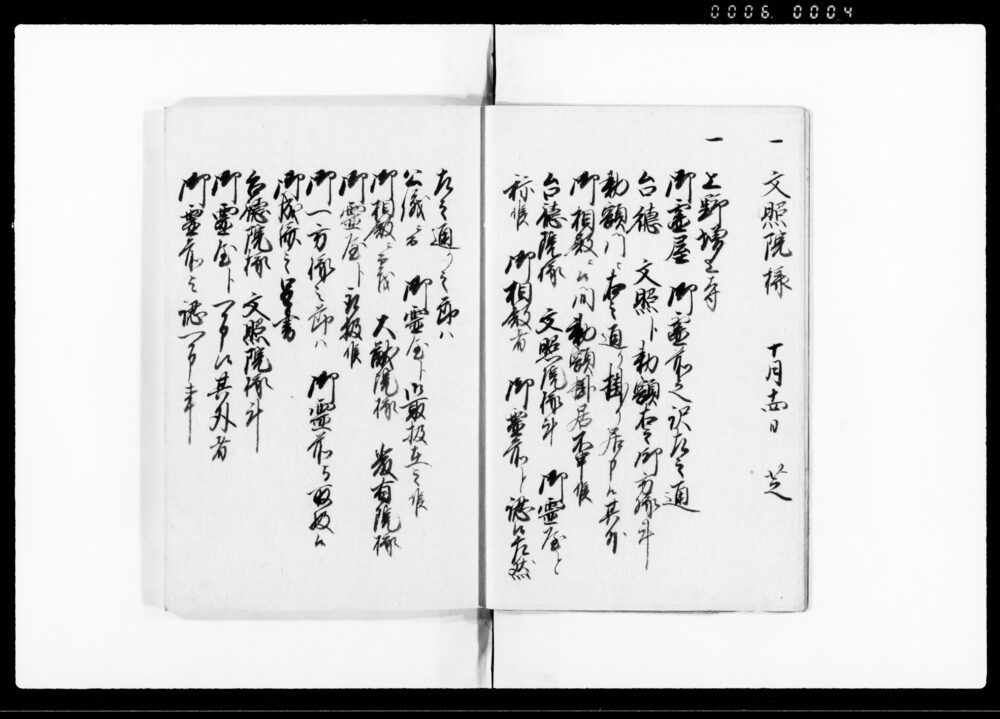 0006. 0004
一 文照院様 十月十四日 芝
一 上野増上寺
御霊屋 御霊前之訳左之通
台徳 文照ト勅額右之御方様斗
勅額門ニ右之通り掛り居申候其外
御相殿ニ候間勅額御居不申候
台徳院様 文照院様斗 御霊屋と
称候 御相殿者 御霊前と認候右然
左之通り之節ハ
公儀ニ者 御霊屋ト御取扱在之候
御相殿ニ 大猷院様 厳有院様
御霊屋ト取扱候
御一方様之節ハ 御霊前与取扱候
御成済之書
台徳院様 文照院様斗
御霊屋ト可申候其外者
御霊前と認可申事